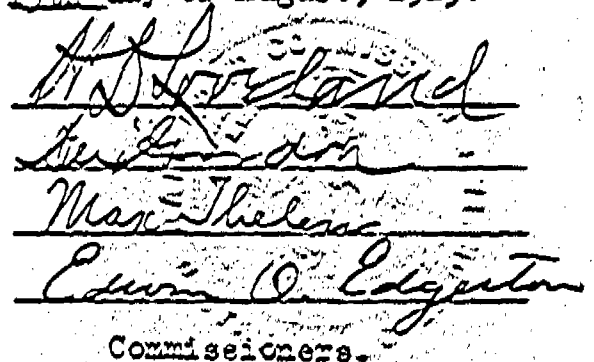 day of August,
H D Loveland
Max Thelen
Edwin O. Edgerton
Commissioners.